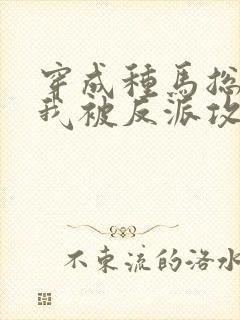 穿成種馬
我被反派攻
不東流的洛水